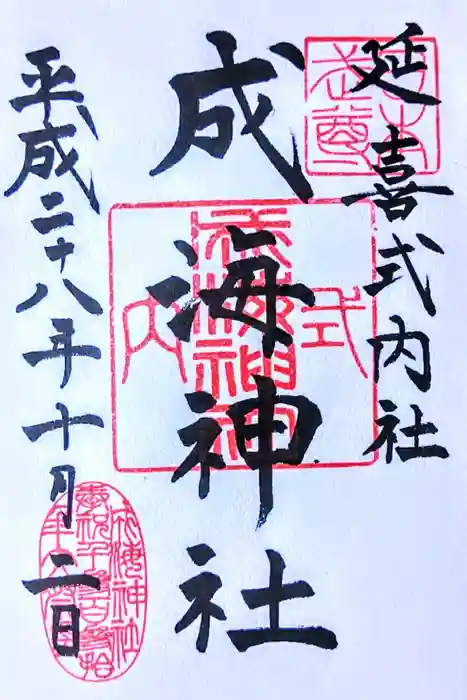 延喜式内社
成海神社
平成二十八年十月二日
式内
成海神社